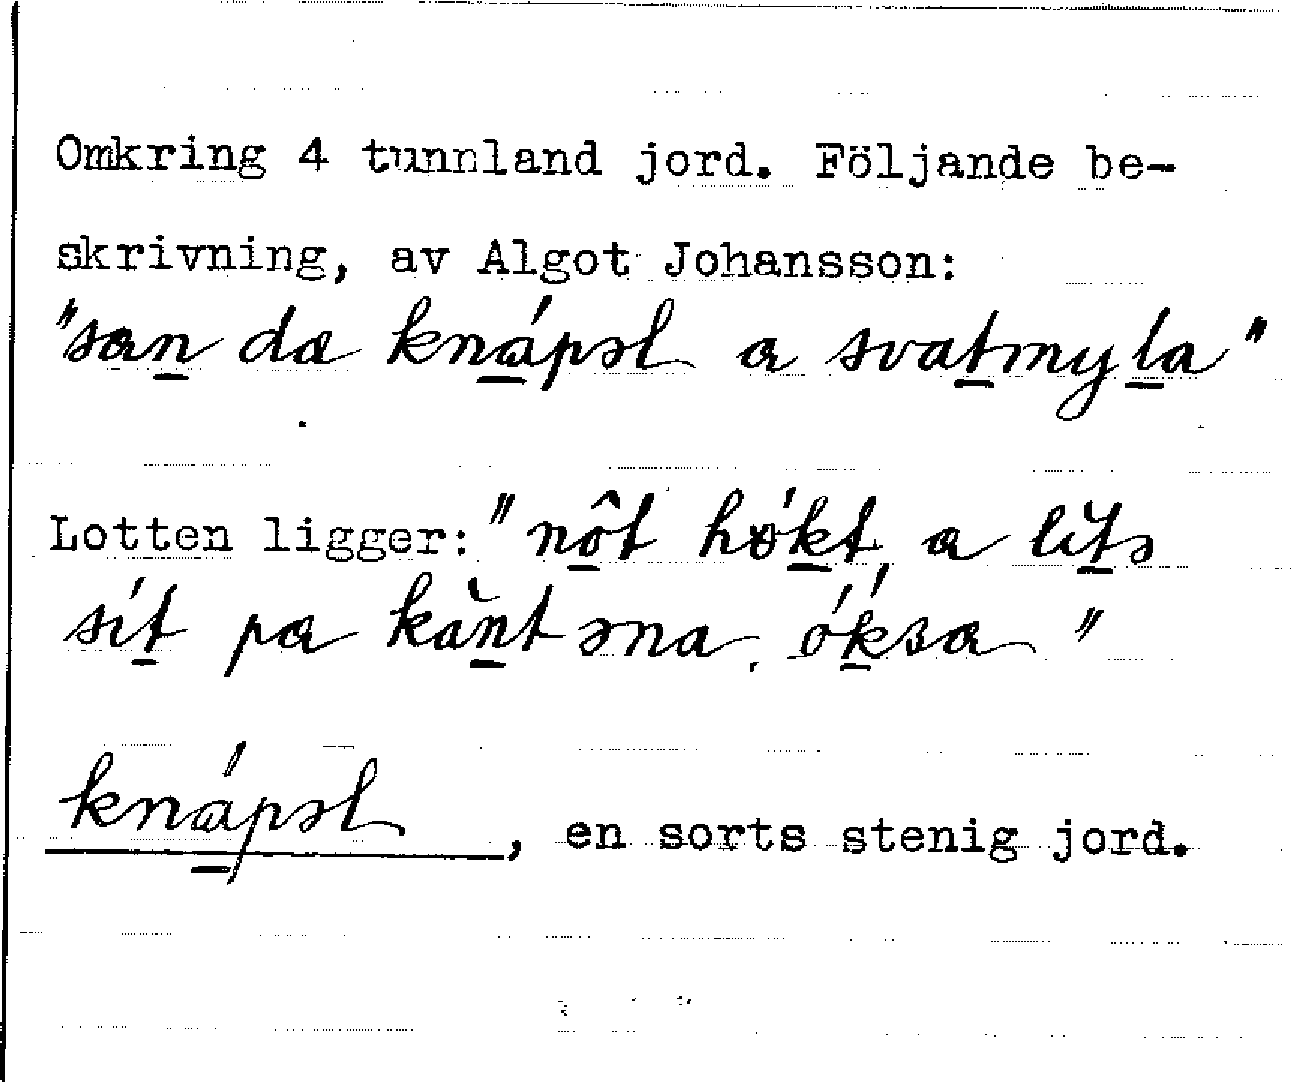 Omkring 4 tunnland jord. Följande be-
skrivning, av Algot Johansson:
"san da knápəl a svatmyla"
Lotten ligger: "nôt hǿkt, a lĭtə
sít pa kăntəna, óksa"
knápəl, en sorts stenig jord.